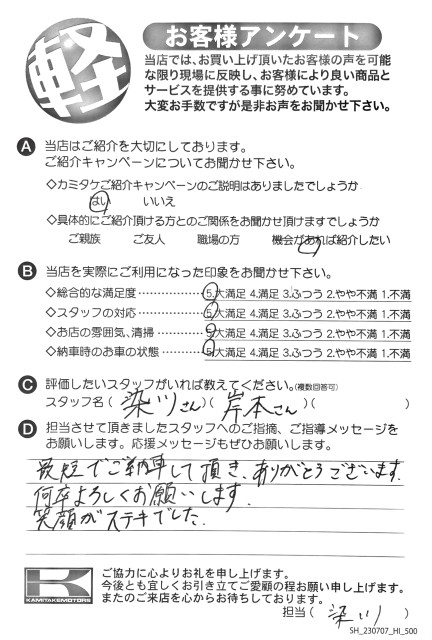 軽
お客様アンケート
当店では、お買い上げ頂いたお客様の声を可能
な限り現場に反映し、お客様により良い商品と
サービスを提供する事に努めています。
大変お手数ですが是非お声をお聞かせ下さい。
A 当店はご紹介を大切にしております。
ご紹介キャンペーンについてお聞かせ下さい。
◇カミタケご紹介キャンペーンのご説明はありましたでしょうか
はい いいえ
◇具体的にご紹介頂ける方とのご関係をお聞かせ頂けますでしょうか
ご親族 ご友人 職場の方 機会があれば紹介したい
B 当店を実際にご利用になった印象をお聞かせ下さい。
◇総合的な満足度 5.大満足 4.満足 3.ふつう 2.やや不満 1.不満
◇スタッフの対応 5.大満足 4.満足 3.ふつう 2.やや不満 1.不満
◇お店の雰囲気、清掃 5.大満足 4.満足 3.ふつう 2.やや不満 1.不満
◇納車時のお車の状態 5.大満足 4.満足 3.ふつう 2.やや不満 1.不満
C 評価したいスタッフがいれば教えてください。(複数回答可)
スタッフ名( 染川さん )( 岸本さん )( )
D 担当させて頂きましたスタッフへのご指摘、ご指導メッセージを
お願いします。応援メッセージもぜひお願いします。
最短でご納車して頂き、ありがとうございます.
何卒よろしくお願いします.
笑顔がステキでした.
KAMITAKEMOTORS
ご協力に心よりお礼を申し上げます。
今後とも宜しくお引き立てご愛顧の程お願い申し上げます。
またのご来店を心からお待ちしております。
担当( 染川 )
SH_230707_HI_500